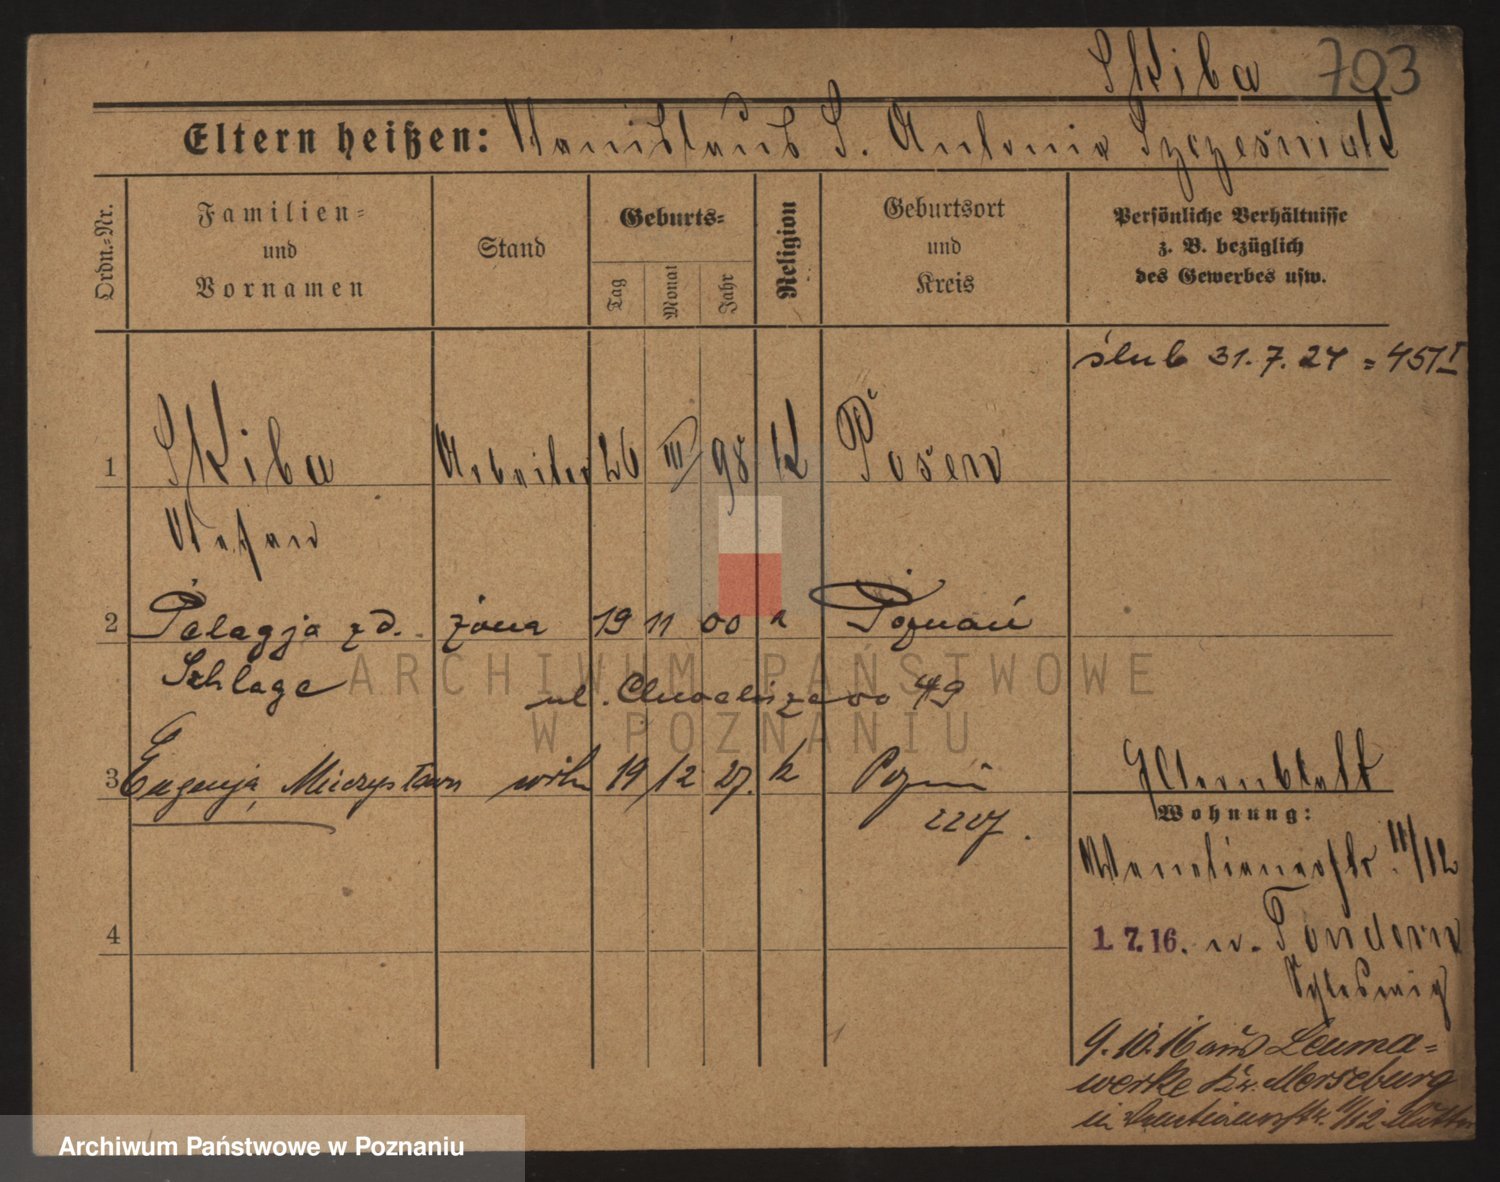 Skiba 703
Eltern heißen: Stanislaus S. Antonie Szczesniak
Ordn.-Nr.
Familien- und Vornamen
Stand
Geburts-
Tag Monat Jahr
Religion
Geburtsort und Kreis
Persönliche Verhältnisse
z. B. bezüglich
des Gewerbes usw.
ślub 31.7.24 = 451 I
1 Skiba Arbeiter 26 III 98 K Posen
Stefan
2 Pelagja zd. żona 19 11 00 k Poznań
Schlage
ul. Chwaliszewo 49
3 Eugenja, Mieczysława 19 12 27. k Pozn
Elternblatt
Wohnung:
Venetianerstr. 11/12
4
1. 7. 16. n. Tondern
Schleswig
9.10.16 aus Leuna-
werke Kr. Merseburg
in Venetianerstr. 11/12
ARCHIWUM PAŃSTWOWE
W POZNANIU
Archiwum Państwowe w Poznaniu